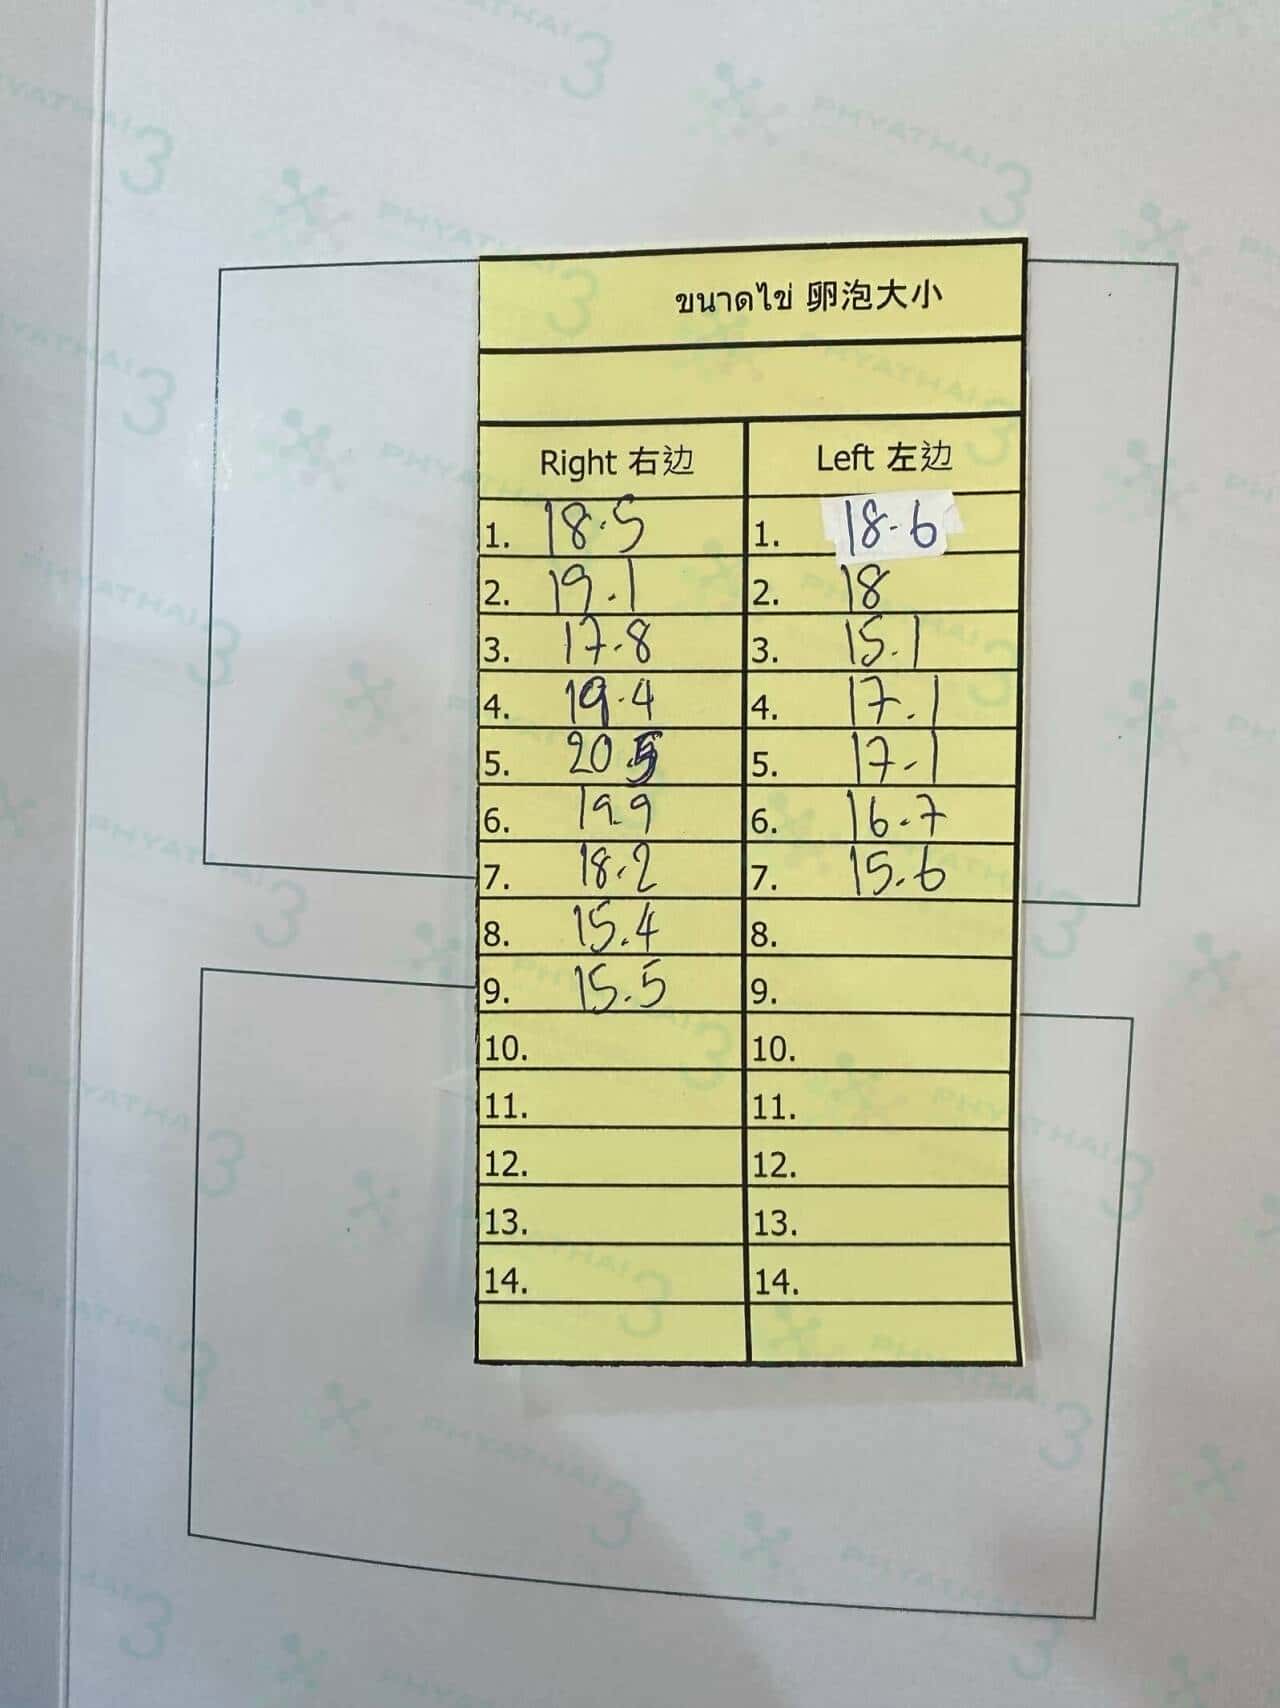 ขนาดไข่ 卵泡大小
Right 右边 Left 左边
1. 18.5 1. 18.6
2. 19.1 2. 18
3. 17.8 3. 15.1
4. 19.4 4. 17.1
5. 20.5 5. 17.1
6. 19.9 6. 16.7
7. 18.2 7. 15.6
8. 15.4 8.
9. 15.5 9.
10. 10.
11. 11.
12. 12.
13. 13.
14. 14.
PHYATHAI 3